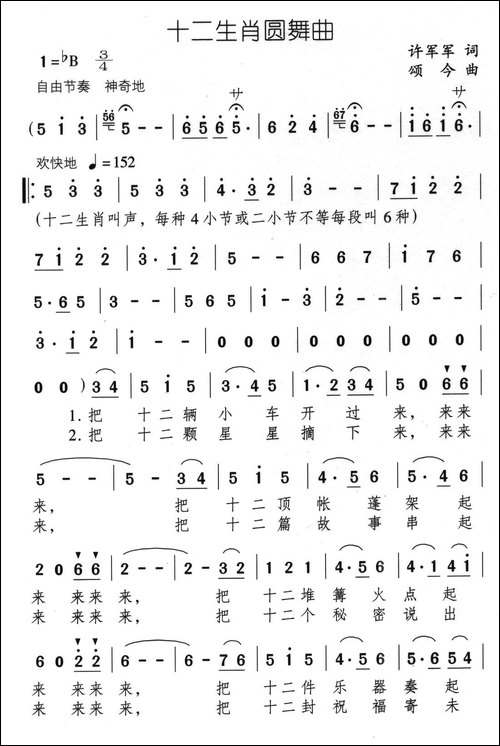 十二生肖圆舞曲
1=♭B 3/4
许军军 词
自由节奏 神奇地
颂今 曲
サ サ
( 5 i 3 | 56 5 - - | 6·5656· 5· | 6 2 4 | 67 6 - - | i·6i6 i6· |
欢快地 ♩=152
‖: 5 3 3 | 5 3 3 | 4·3 2 | 3 - - | 7 1 2 2 |
(十二生肖叫声，每种4小节或二小节不等每段叫6种)
7 1 2 2 | 3·1 2 | 5 - - | 6 6 7 | 1 7 6 |
5·6 5 | 3 - - | 5 6 5 | i - 3 | 2 - - | 5 - 5 |
3·1 2 | 1 - - | 0 0 0 | 0 0 0 | 0 0 0 |
0 0 ) 3 4 | 5 i 5 | 4·5 3 | 1·2 3 4 | 5 0 6 6 |
1.把 十二辆 小车 开过 来，来来
2.把 十二颗 星星 摘下 来，来来
5 - - | 5 - 3 4 | 5 i 5 | 4·5 6 | 5·4 5 6 |
来， 把 十二顶 帐篷 架起
来， 把 十二篇 故事 串起
2 0 6 6 | 2 - - | 2 - 3 2 | 1 2 1 | 4·5 6 | 4·1 4 i |
来 来来来， 把 十二堆 篝火 点起
来 来来来， 把 十二个 秘密 说出
6 0 2 2 | 6 - - | 6 - 7 6 | 5 i 5 | 4·5 6 | 5·6 5 4 |
来 来来来， 把 十二件 乐器 奏起
来 来来来， 把 十二封 祝福 寄未